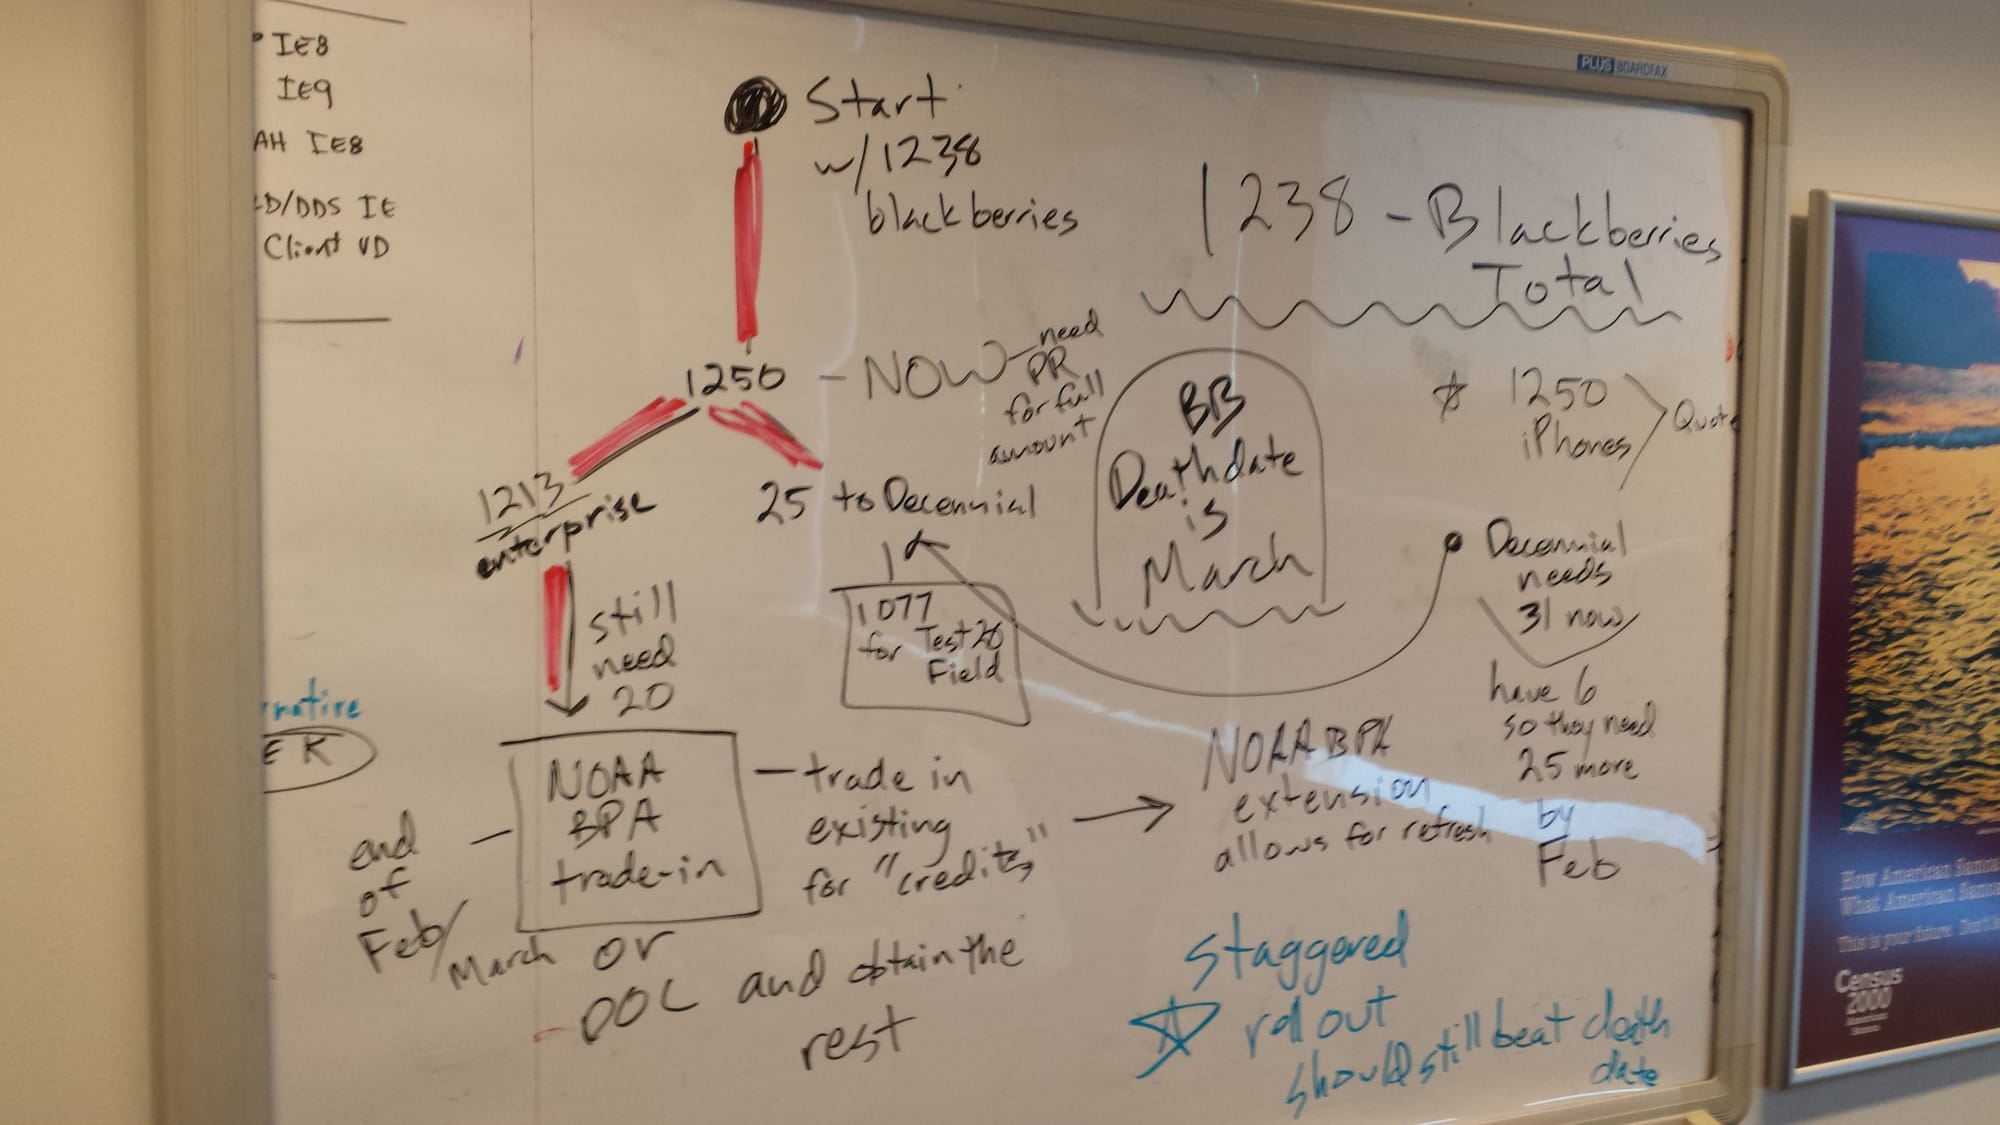 IE8
IE9
AH IE8
D/DDS IE
Client VD
PLUS BOARDFAX
Start
w/1238
blackberries
1238 - Blackberries
Total
1250 - NOW - need
PR
for full
amount
1213
enterprise
25 to Decennial
still
need
20
1077
for Test 26
Field
BB
Deathdate
is
March
☆ 1250
iPhones
Quote
Decennial
needs
31 now
have 6
so they need
25 more
by
Feb
native
ER
NOAA
BPA
trade-in
end
of
Feb/
March or
DOC and obtain the
rest
- trade in
existing
for "credits"
NOAA BPA
extension
allows for refresh
staggered
☆ roll out
should still beat death
date
How American Samoa
What American Samoa
This is your future. Don't
Census
2000
American
Samoa